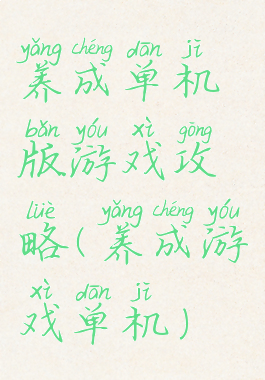 yǎng chéng dān jī
养成单机
bǎn yóu xì gōng
版游戏攻
lüè yǎng chéng yóu
略(养成游
xì dān jī
戏单机)